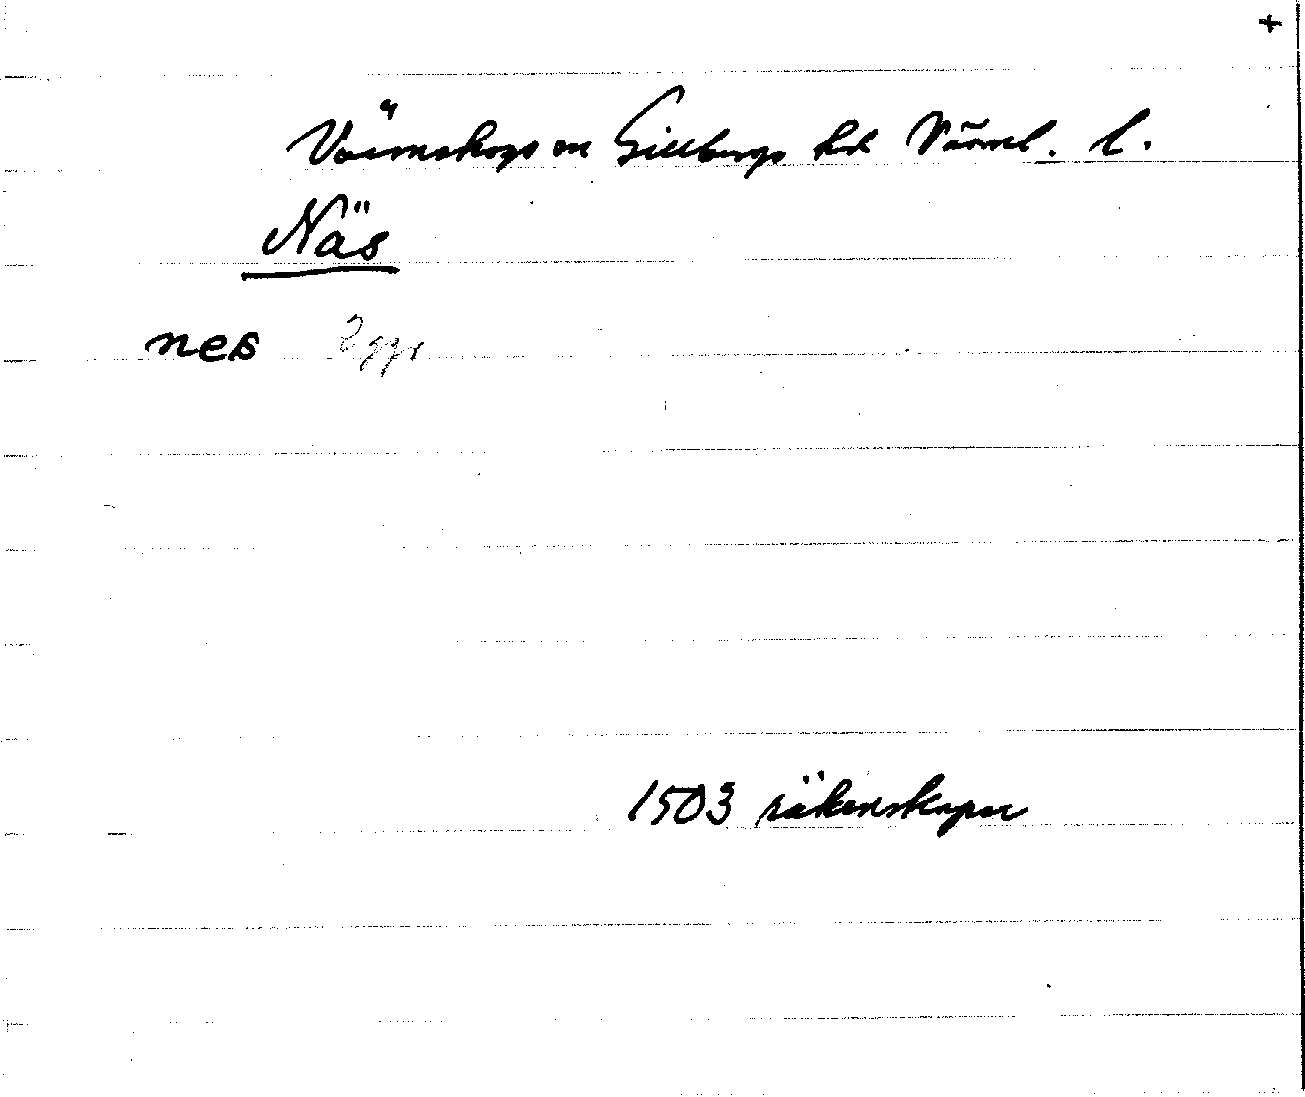 +
Värmskogs sn Gillbergs hd Värml. l.
Näs
nes 2 ggr
1503 räkenskaper